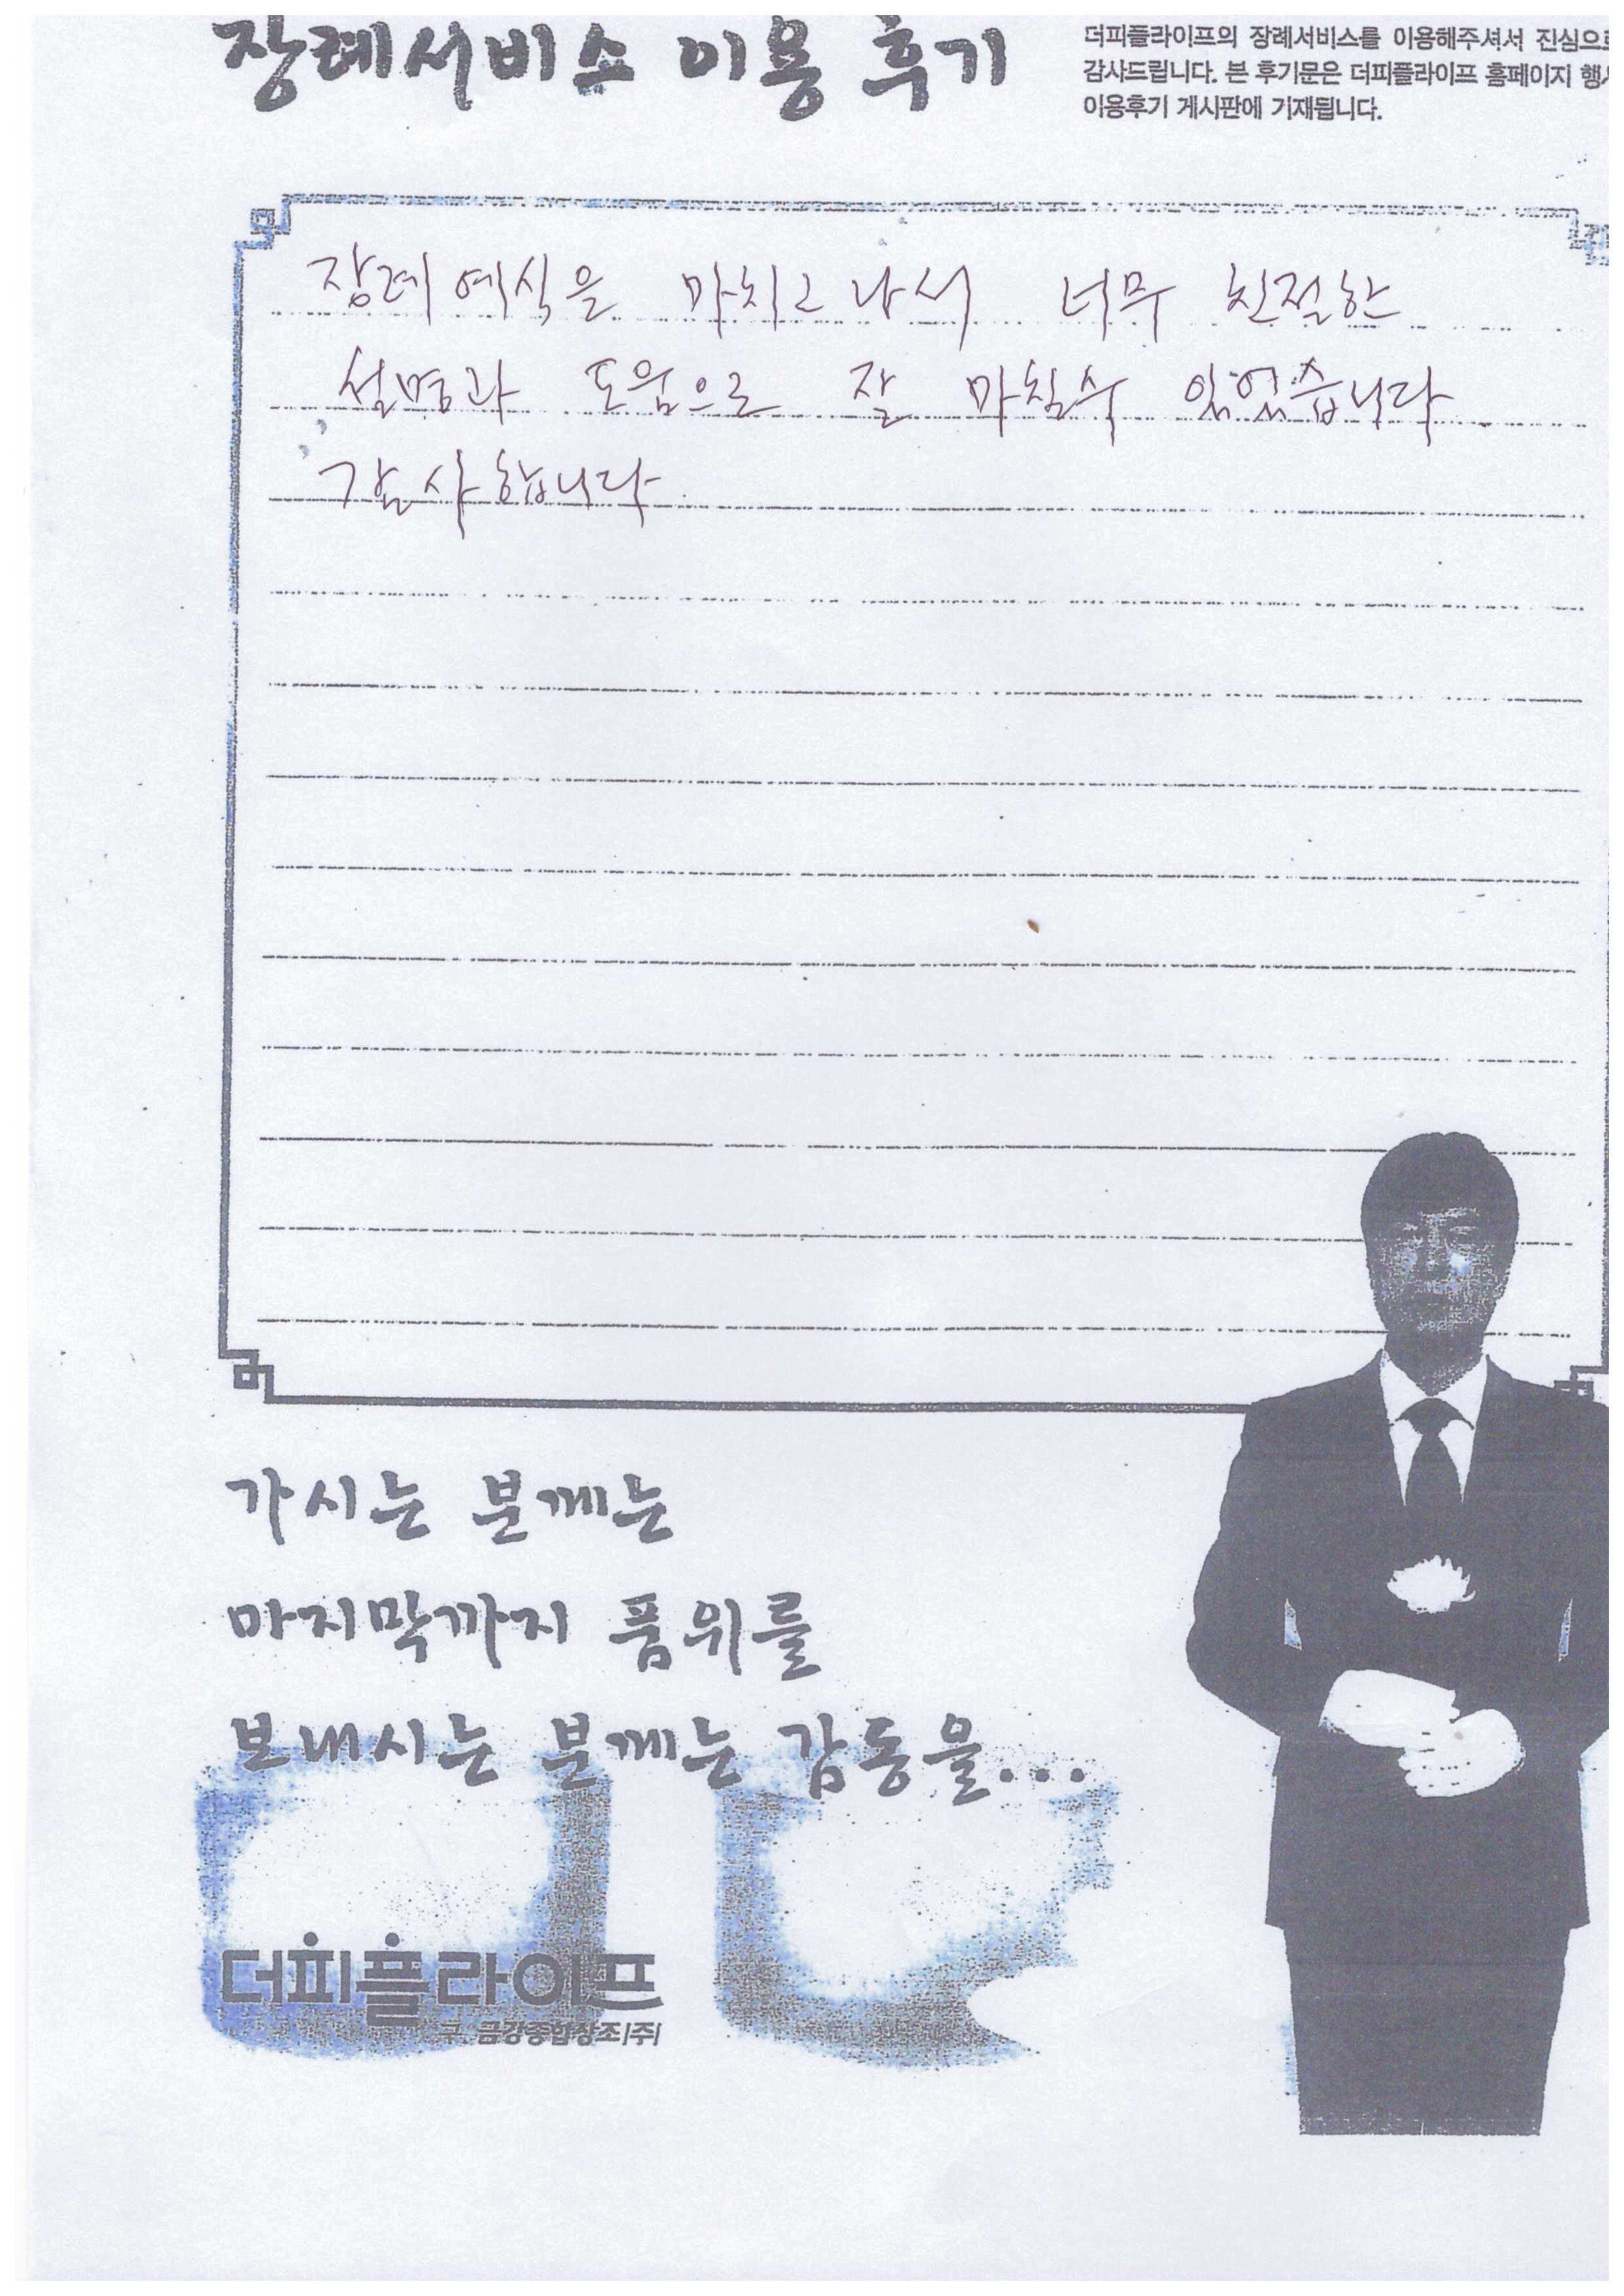 장례서비스 이용 후기
더피플라이프의 장례서비스를 이용해주셔서 진심으로
감사드립니다. 본 후기문은 더피플라이프 홈페이지 행사
이용후기 게시판에 기재됩니다.
장례 예식을 마치고 나서 너무 친절한
설명과 도움으로 잘 마칠수 있었습니다
감사합니다.
가시는 분께는
마지막까지 품위를
보내시는 분께는 감동을...
더피플라이프
구. 금강종합상조(주)